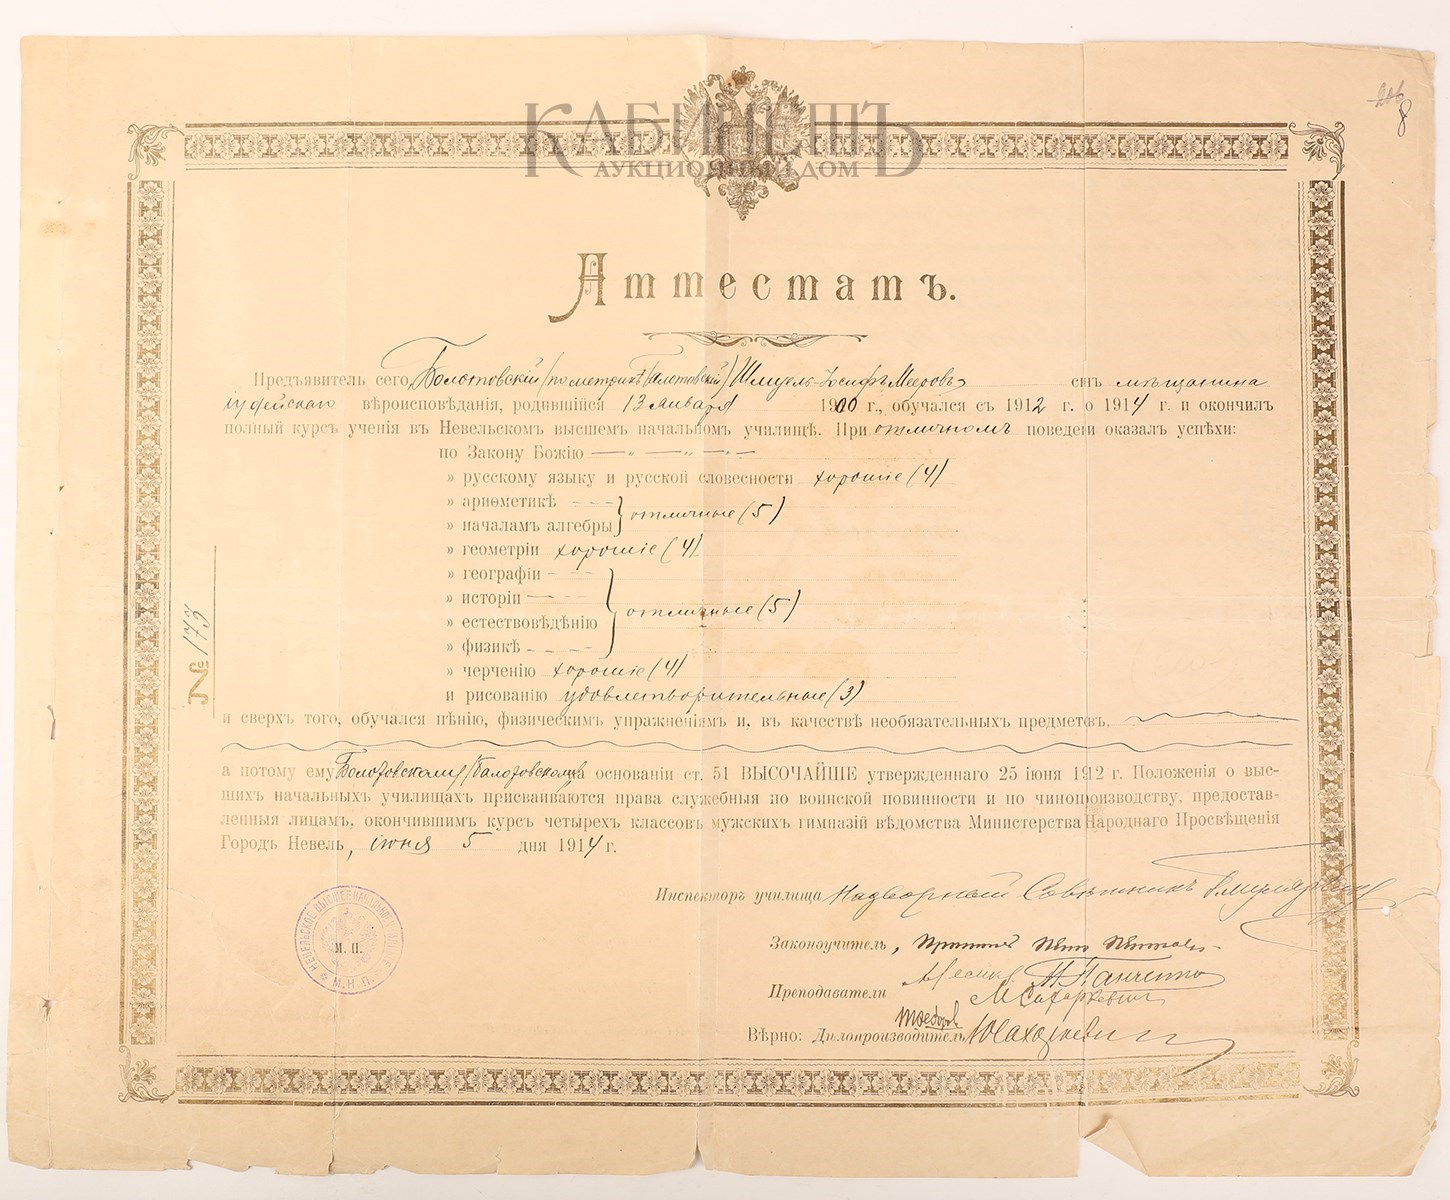 206
8
КАБИНЕТЪ
АУКЦИОННЫЙ ДОМ
Аттестатъ.
Предъявитель сего, Болотовскій /по метрикѣ Балотовскій/ Шмуель-Іосифъ Мееровъ сынъ мѣщанина
іудейскаго вѣроисповѣданія, родившійся 13 января 1900 г., обучался съ 1912 г. по 1914 г. и окончилъ
полный курсъ ученія въ Невельскомъ высшемъ начальномъ училищѣ. При отличномъ поведеніи оказалъ успѣхи:
по Закону Божію — „ — „ — „ —
» русскому языку и русской словесности хорошіе (4)
» ариѳметикѣ - - -
» началамъ алгебры } отличные (5)
» геометріи хорошіе (4)
» географіи - - -
» исторіи - - -
» естествовѣдѣнію } отличные (5)
» физикѣ - - - -
» черченію хорошіе (4)
и рисованію удовлетворительные (3)
и сверхъ того, обучался пѣнію, физическимъ упражненіямъ и, въ качествѣ необязательныхъ предметовъ,
а потому ему, Болотовскому /Балотовскому/ на основаніи ст. 51 ВЫСОЧАЙШЕ утвержденнаго 25 іюня 1912 г. Положенія о выс-
шихъ начальныхъ училищахъ присваиваются права служебныя по воинской повинности и по чинопроизводству, предостав-
ленныя лицамъ, окончившимъ курсъ четырехъ классовъ мужскихъ гимназій вѣдомства Министерства Народнаго Просвѣщенія
Городъ Невель, іюня 5 дня 1914 г.
№ 173
Инспекторъ училища Надворный Совѣтникъ
Законоучитель, Протоіерей Петръ
Преподаватели П. Панченко
М. Сахаркевичъ
Вѣрно: Дѣлопроизводитель
НЕВЕЛЬСКОЕ ВЫСШЕЕ НАЧАЛЬНОЕ
М. Н. П.
М. П.